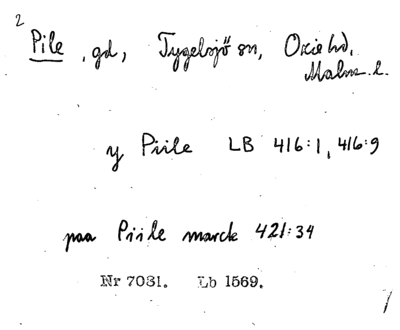 2
Pile, gd, Tygelsjö sn, Oxie hd,
Malm. l.
y Piile LB 416:1, 416:9
paa Piile marck 421:34
Nr 7031. Lb 1569.